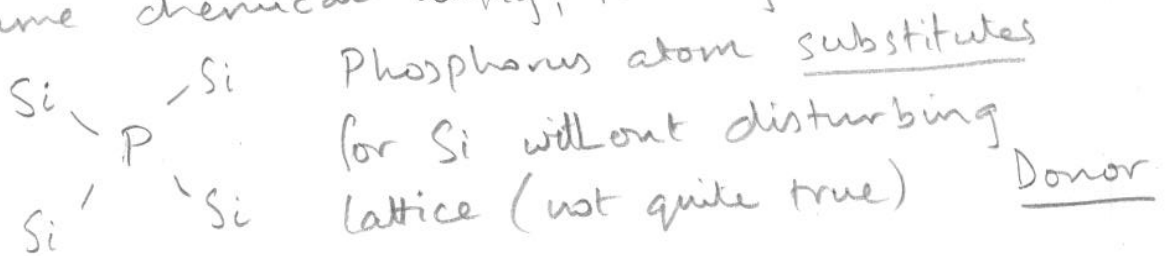 chemical
Si Si Phosphorus atom substitutes
P for Si without disturbing
Si Si lattice (not quite true) Donor